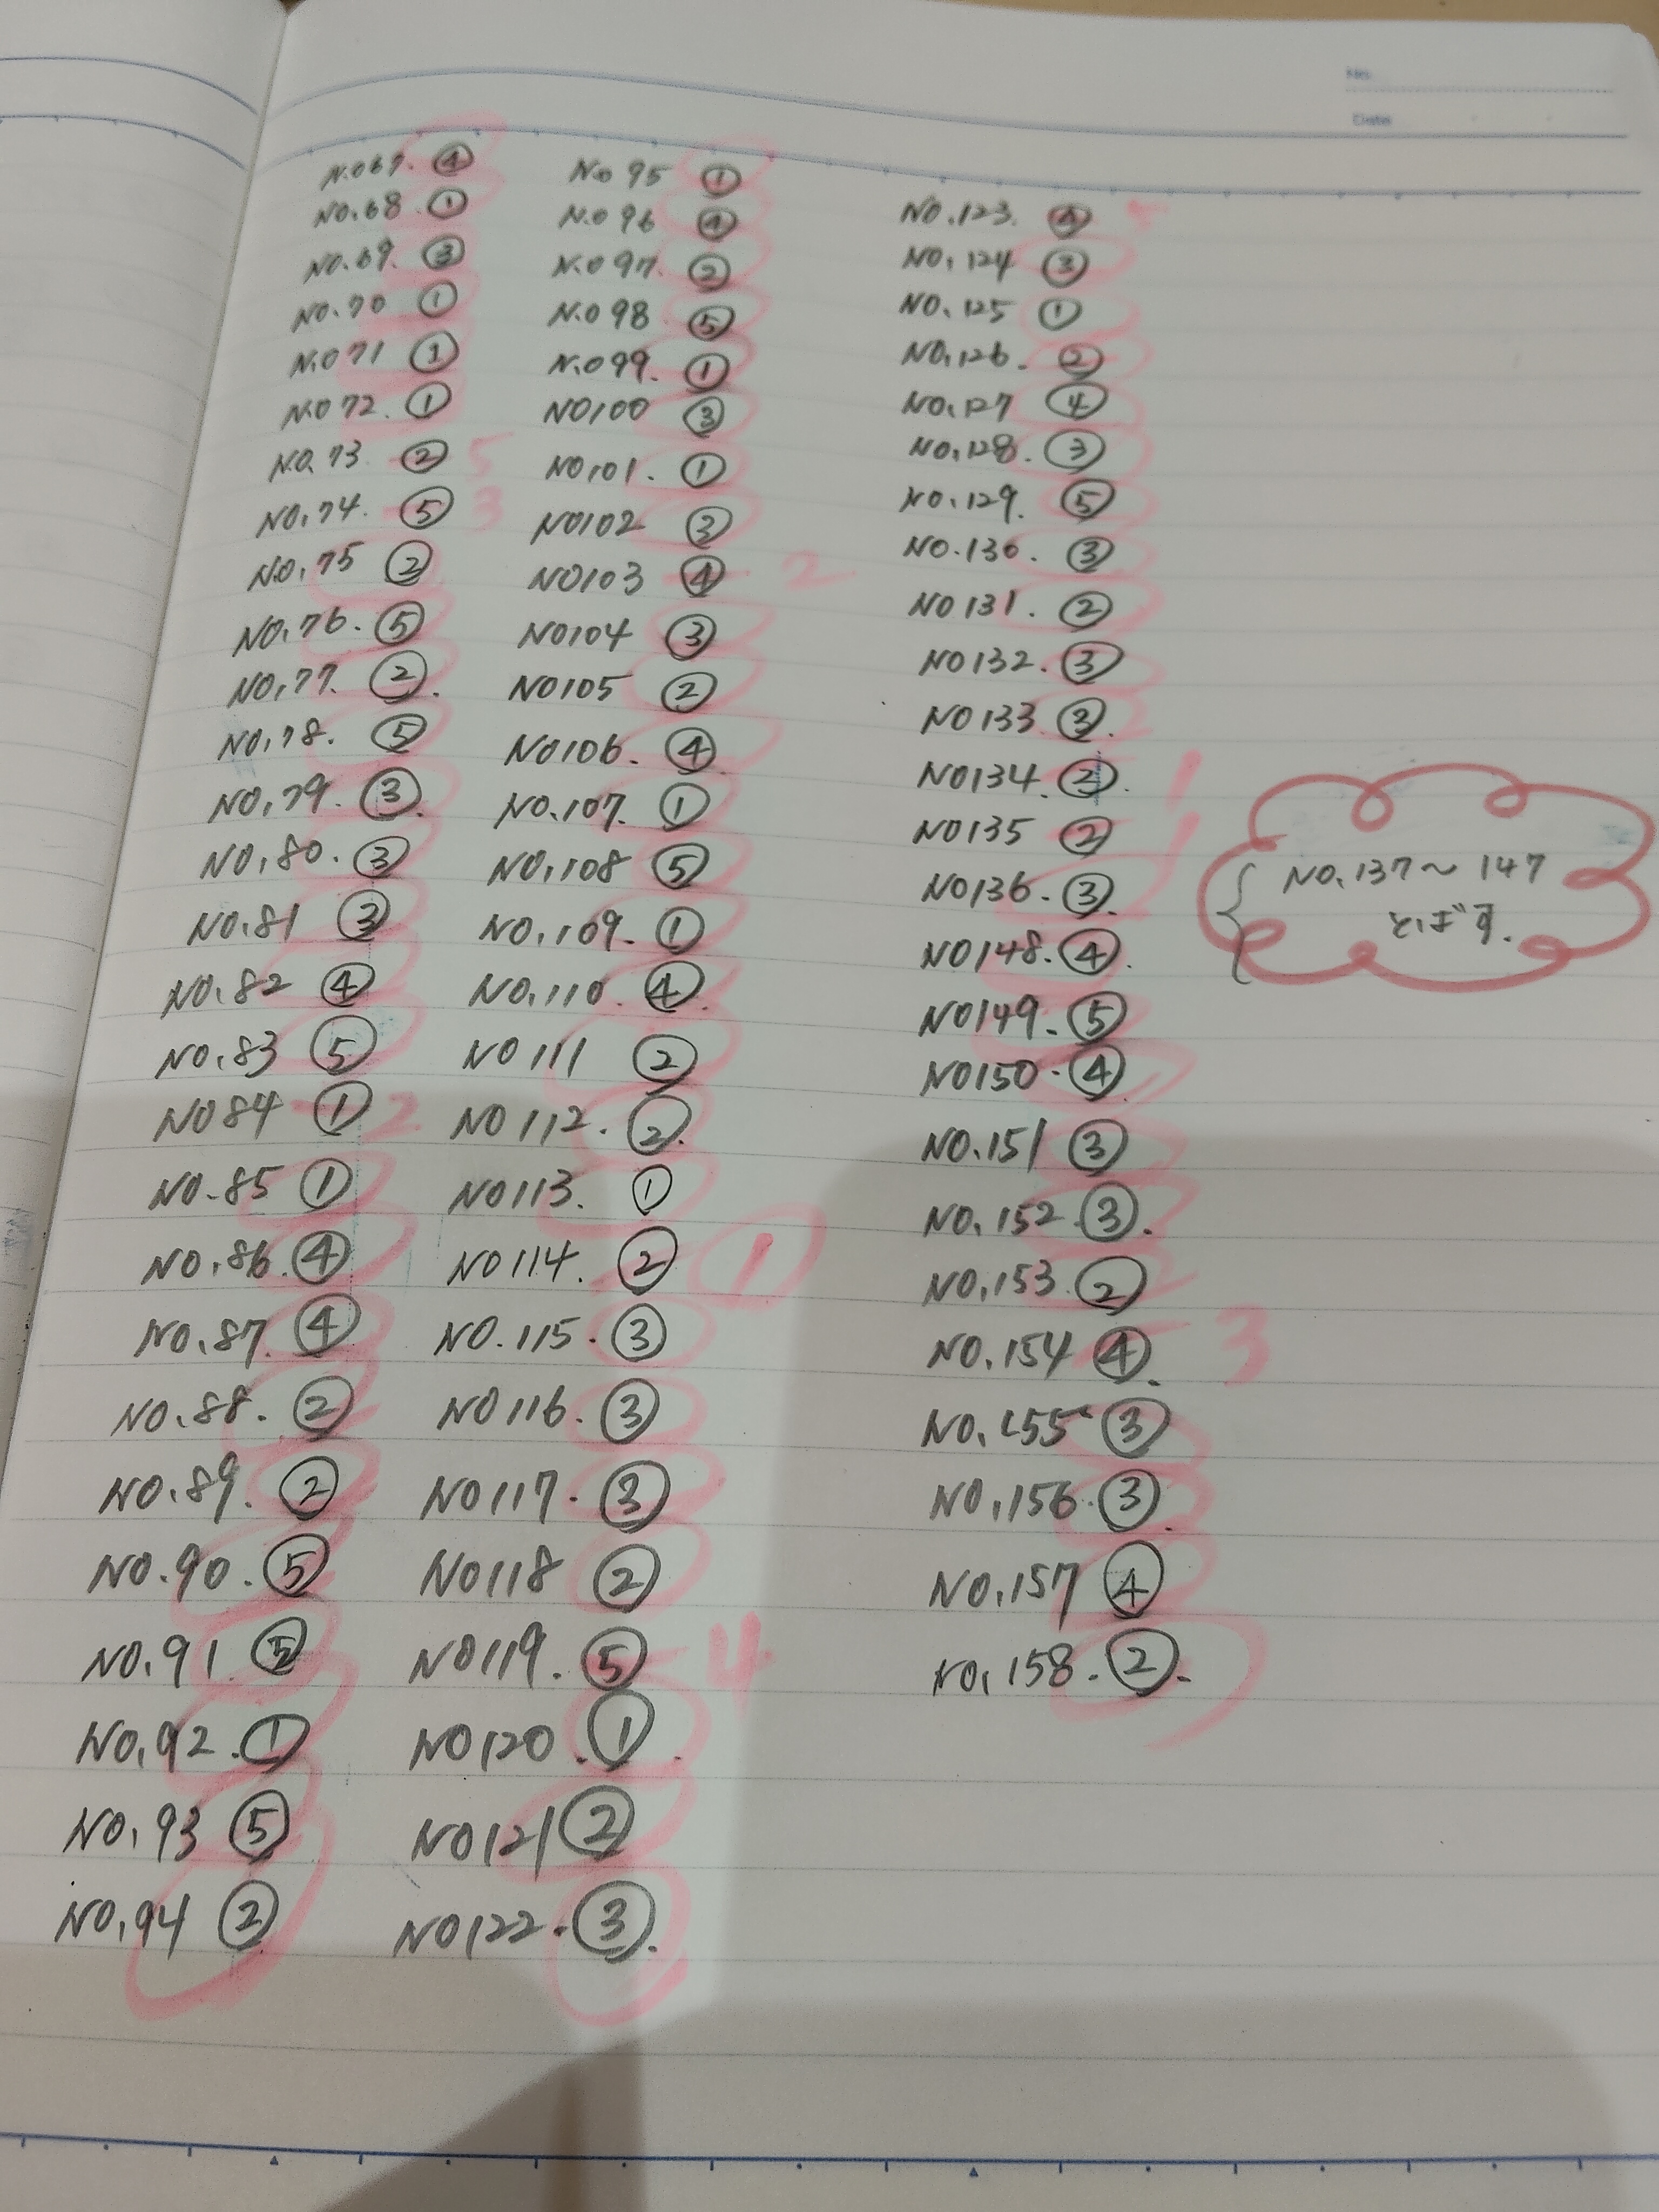 No.
Date
No67. ④
NO.68 ①
NO.69. ③
NO.70 ①
NO71 ①
NO72. ①
NO.73 ② 5
NO.74. ⑤ 3
NO.75 ②
NO.76. ⑤
NO.77. ②.
NO.78. ⑤
NO.79. ③.
NO.80. ③
NO.81 ③
NO.82 ④
NO.83 ⑤
NO84 ① 2
NO.85 ①
NO.86. ④
NO.87. ④
NO.88. ②
NO.89. ②
NO.90. ⑤
NO.91
NO.92. ①
NO.93 ⑤
NO.94 ②
No 95 ①
No 96 ④
No 97. ②
No 98 ⑤
No 99. ①
NO100 ③
NO101. ①
NO102 ③
NO103 ④ 2
NO104 ③
NO105 ②
NO106. ④
NO.107. ①
NO.108 ⑤
NO.109. ①
NO.110. ④.
NO111 ②
NO112. ②.
NO113. ①
NO114. ② 1
NO.115. ③
NO116. ③
NO117. ③
NO118 ②
NO119. ⑤ 4
NO120. ①.
NO121 ②
NO122. ③.
NO.123.
NO.124 ③
NO.125 ①
NO.126. ②
NO.127 ④
NO.128. ③
NO.129. ⑤
NO.130. ③
NO131. ②
NO132. ③
NO133. ③.
NO134. ②. 1
NO135 ② 1
NO136. ③.
NO.137～147
とばす.
NO148. ④.
NO149. ⑤
NO150. ④.
NO.151 ③
NO.152. ③.
NO.153. ②
NO.154 ④. 3
NO.155 ③
NO.156. ③.
NO.157 ④
NO.158. ②.